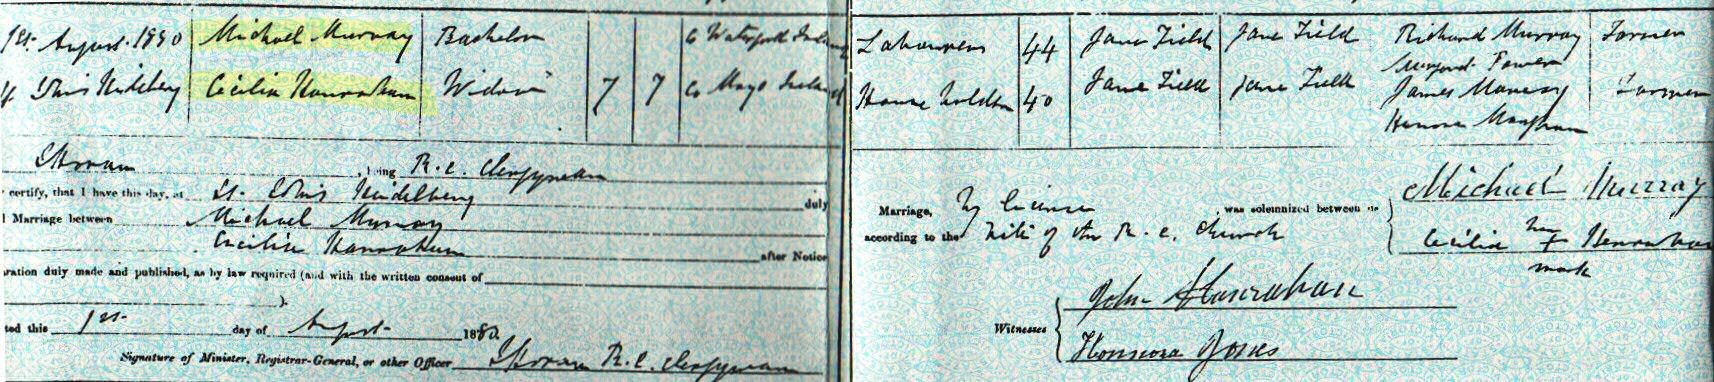 1st August 1880 Michael Murray Bachelor Co Waterford Ireland
Heidelberg Cecilia Hanrahan Widow 7 7 Co Mayo Ireland
being R.C. Clergyman
certify, that I have this day, at St. Heidelberg duly
Marriage between Michael Murray
Cecilia Hanrahan after Notice
ration duly made and published, as by law required (and with the written consent of
).
ted this 1st day of August 1880.
Signature of Minister, Registrar-General, or other Officer R.C. Clergyman
Labourer 44 Jane Field Jane Field Richard Murray Farmer
Margaret Power
House holder 40 Jane Field Jane Field James Farmer
Honora
Marriage, by license was solemnized between us Michael Murray
according to the Rite of the R.C. Church Cecilia her X Hanrahan
mark
John Hanrahan
Witnesses
Honnora Jones